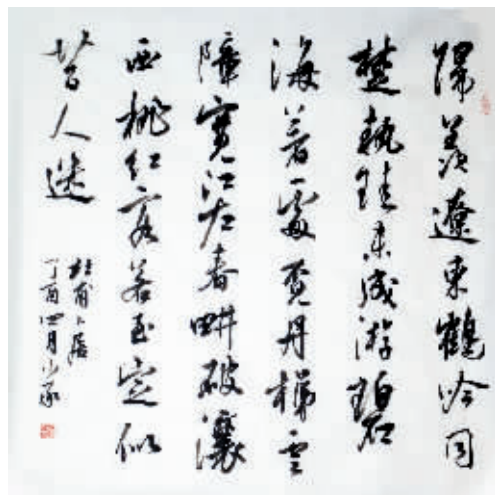 歸羨遼東鶴吟同
楚執珪未成游碧
海著處覓丹梯云
障寬江左春畊破瀼
西桃红客若至定似
昔人迷
杜甫卜居
丁酉四月